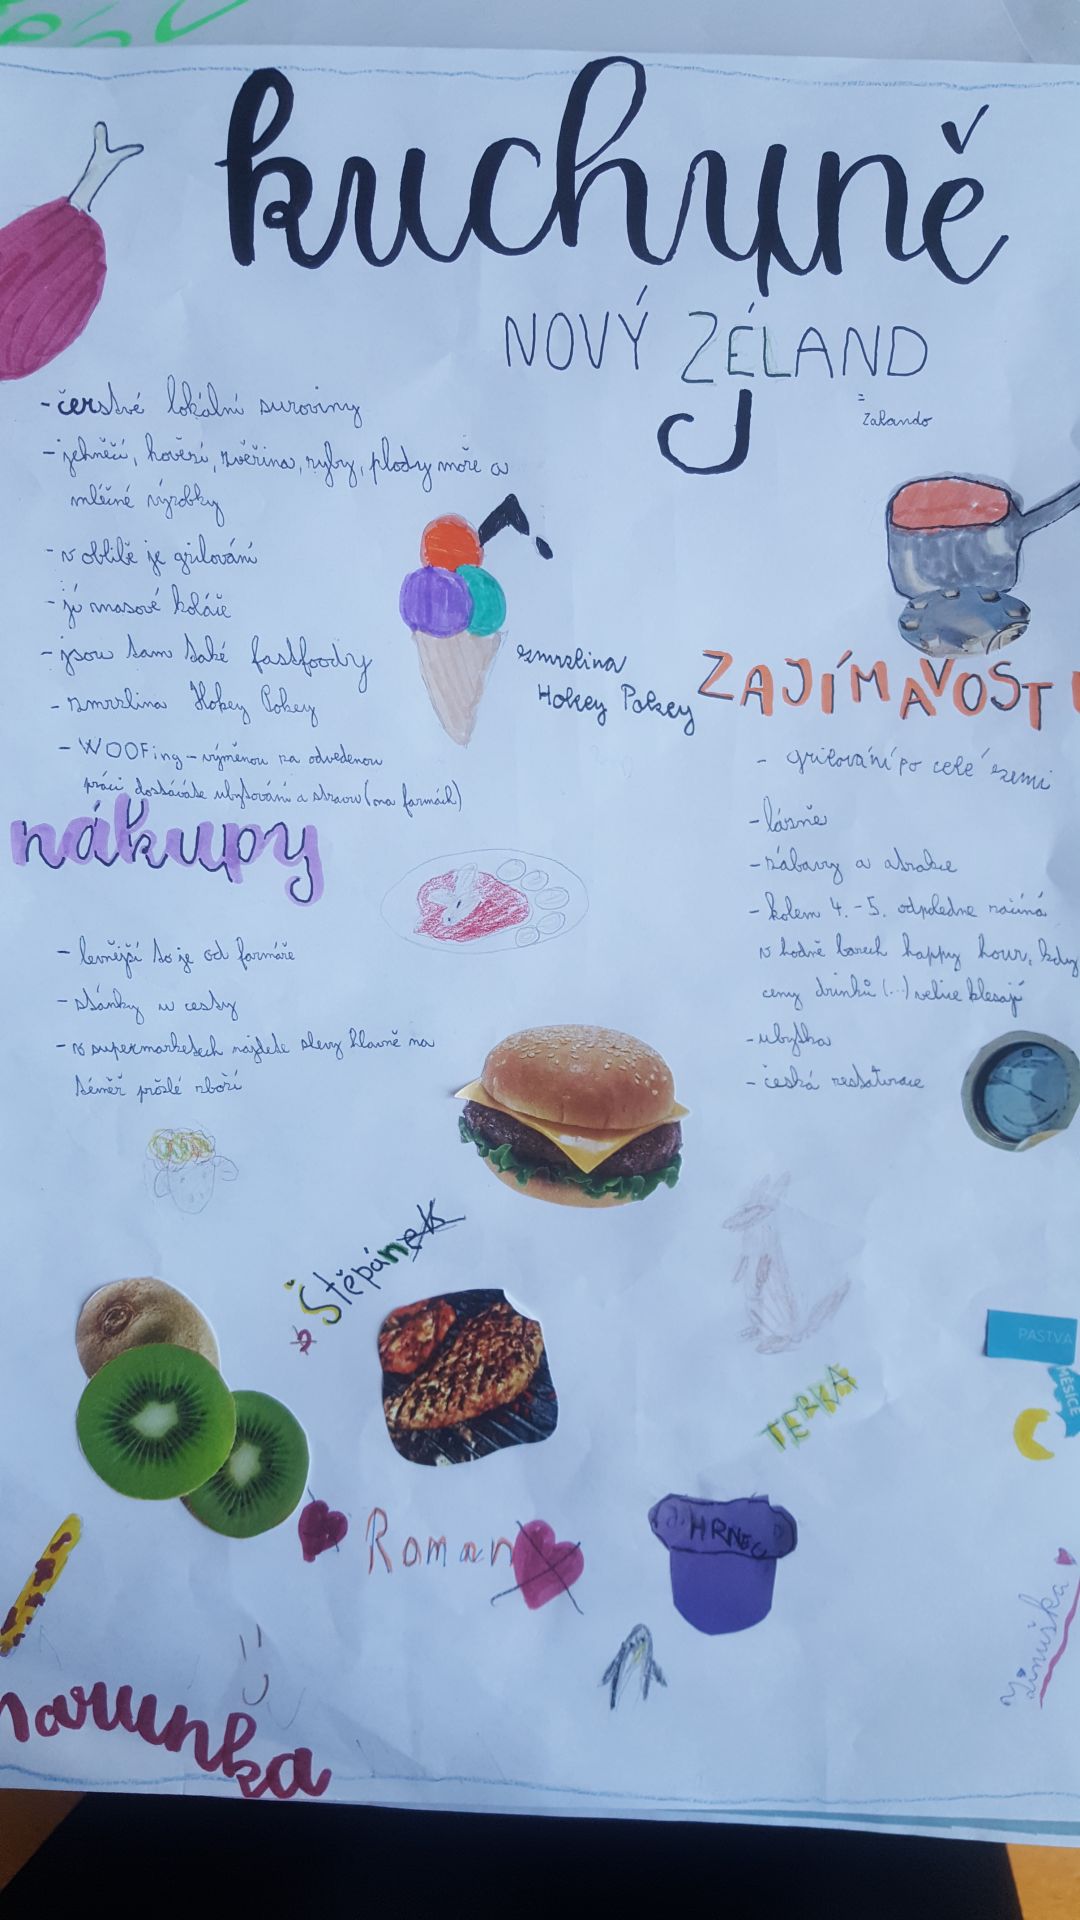 kuchyně
NOVÝ ZÉLAND
=
Zalando
- čerstvé lokální suroviny
- jehněčí, hovězí, zvěřina, ryby, plody moře a
mléčné výrobky
- v oblibě je grilování
- jí masové koláče
- jsou tam také fastfoody
- zmrzlina Hokey Pokey
- WOOFing - výměnou za odvedenou
práci dostáváte ubytování a stravu (na farmách)
zmrzlina
Hokey Pokey
nákupy
- levnější to je od farmáře
- stánky u cesty
- v supermarketech najdete slevy hlavně na
téměř prošlé zboží
ZAJÍMAVOSTI
- grilování po celé zemi
- lázně
- zábavy a atrakce
- kolem 4.-5. odpoledne začíná
v hodně barech happy hour, kdy
ceny drinků (...) velice klesají
- ubytka
- česká restaurace
Štěpánek
PASTVA
MĚSÍCE
TERKA
HRNEC
Roman
Jiřnuška
marunka